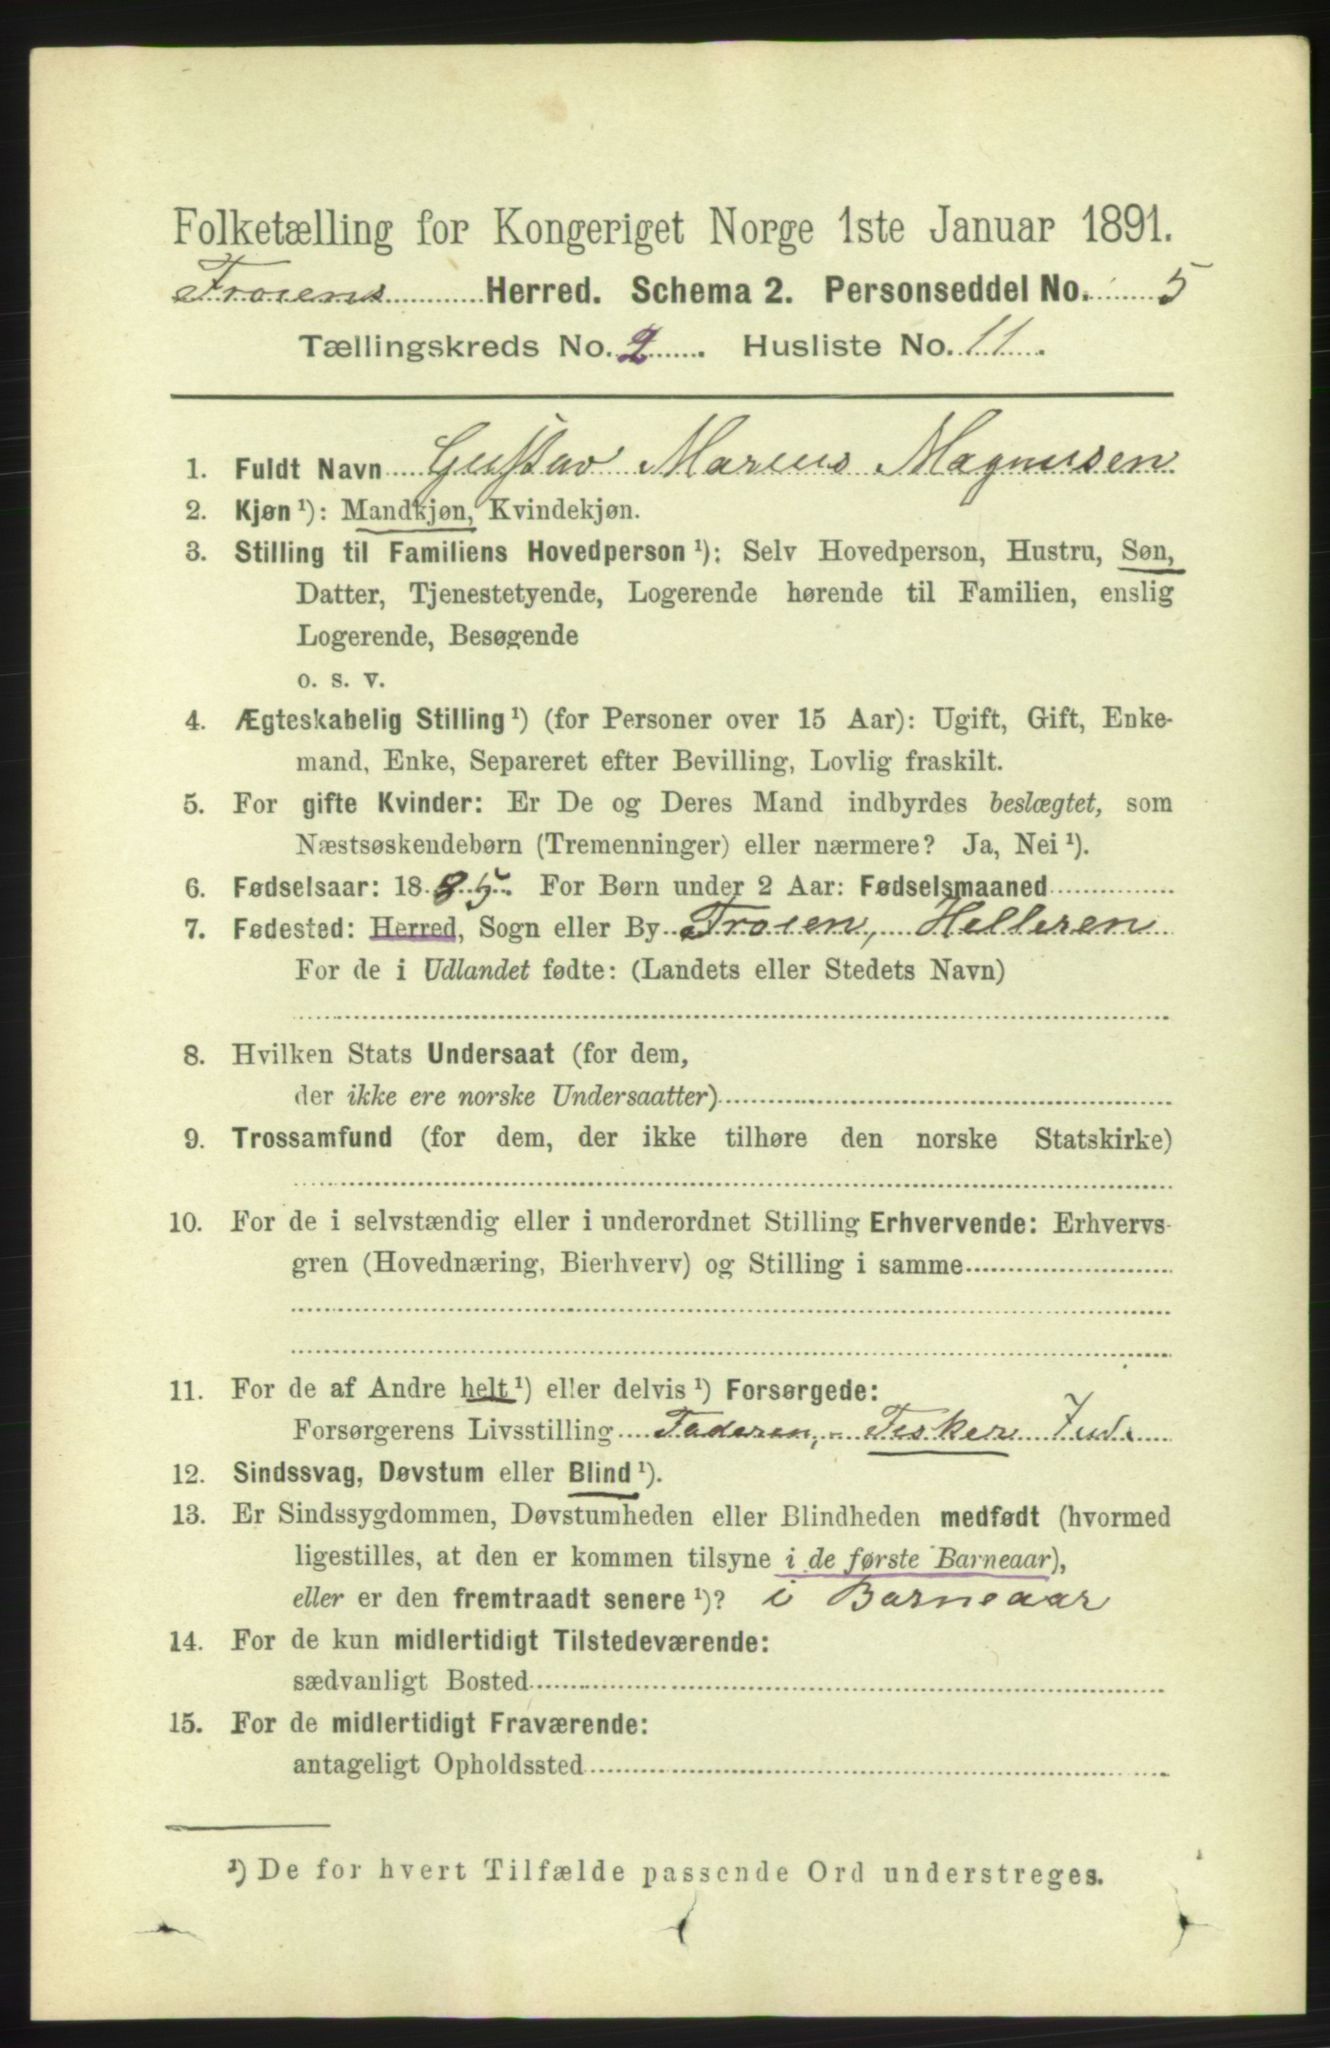 Folketælling for Kongeriget Norge 1ste Januar 1891.
Froiens Herred. Schema 2. Personseddel No. 5
Tællingskreds No. 2. Husliste No. 11.
1. Fuldt Navn Gustav Marius Magnusen
2. Kjøn ¹): Mandkjøn, Kvindekjøn.
3. Stilling til Familiens Hovedperson ¹): Selv Hovedperson, Hustru, Søn,
Datter, Tjenestetyende, Logerende hørende til Familien, enslig
Logerende, Besøgende
o. s. v.
4. Ægteskabelig Stilling ¹) (for Personer over 15 Aar): Ugift, Gift, Enke-
mand, Enke, Separeret efter Bevilling, Lovlig fraskilt.
5. For gifte Kvinder: Er De og Deres Mand indbyrdes beslægtet, som
Næstsøskendebørn (Tremenninger) eller nærmere? Ja, Nei ¹).
6. Fødselsaar: 1885. For Børn under 2 Aar: Fødselsmaaned
7. Fødested: Herred, Sogn eller By Froien, Helleren
For de i Udlandet fødte: (Landets eller Stedets Navn)
8. Hvilken Stats Undersaat (for dem,
der ikke ere norske Undersaatter)
9. Trossamfund (for dem, der ikke tilhøre den norske Statskirke)
10. For de i selvstændig eller i underordnet Stilling Erhvervende: Erhvervs-
gren (Hovednæring, Bierhverv) og Stilling i samme
11. For de af Andre helt ¹) eller delvis ¹) Forsørgede:
Forsørgerens Livsstilling Faderen, - Fisker
12. Sindssvag, Døvstum eller Blind ¹).
13. Er Sindssygdommen, Døvstumheden eller Blindheden medfødt (hvormed
ligestilles, at den er kommen tilsyne i de første Barneaar),
eller er den fremtraadt senere ¹)? i Barneaar
14. For de kun midlertidigt Tilstedeværende:
sædvanligt Bosted
15. For de midlertidigt Fraværende:
antageligt Opholdssted
¹) De for hvert Tilfælde passende Ord understreges.